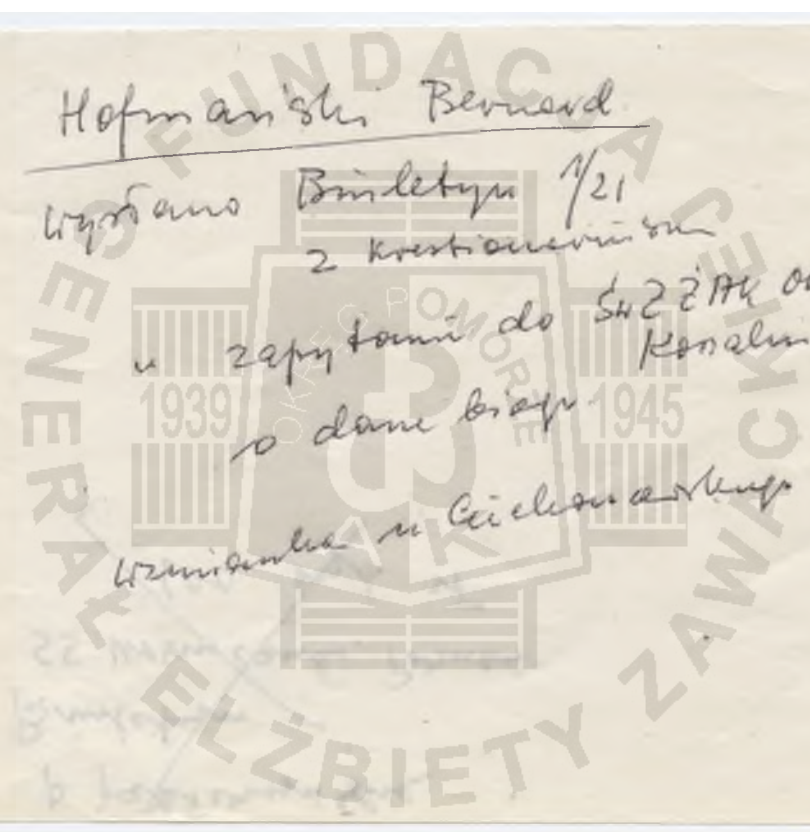 Hofmański Bernard
wysłano Biuletyn 1/21
z kwestionariuszem
" zapytanie do ŚwZŻAK
o dane biogr.
wzmianka u Ciechanowskiego
FUNDACJA GENERAŁ ELŻBIETY ZAWACKIEJ
OKRĘG POMORZE
1939 1945
AK